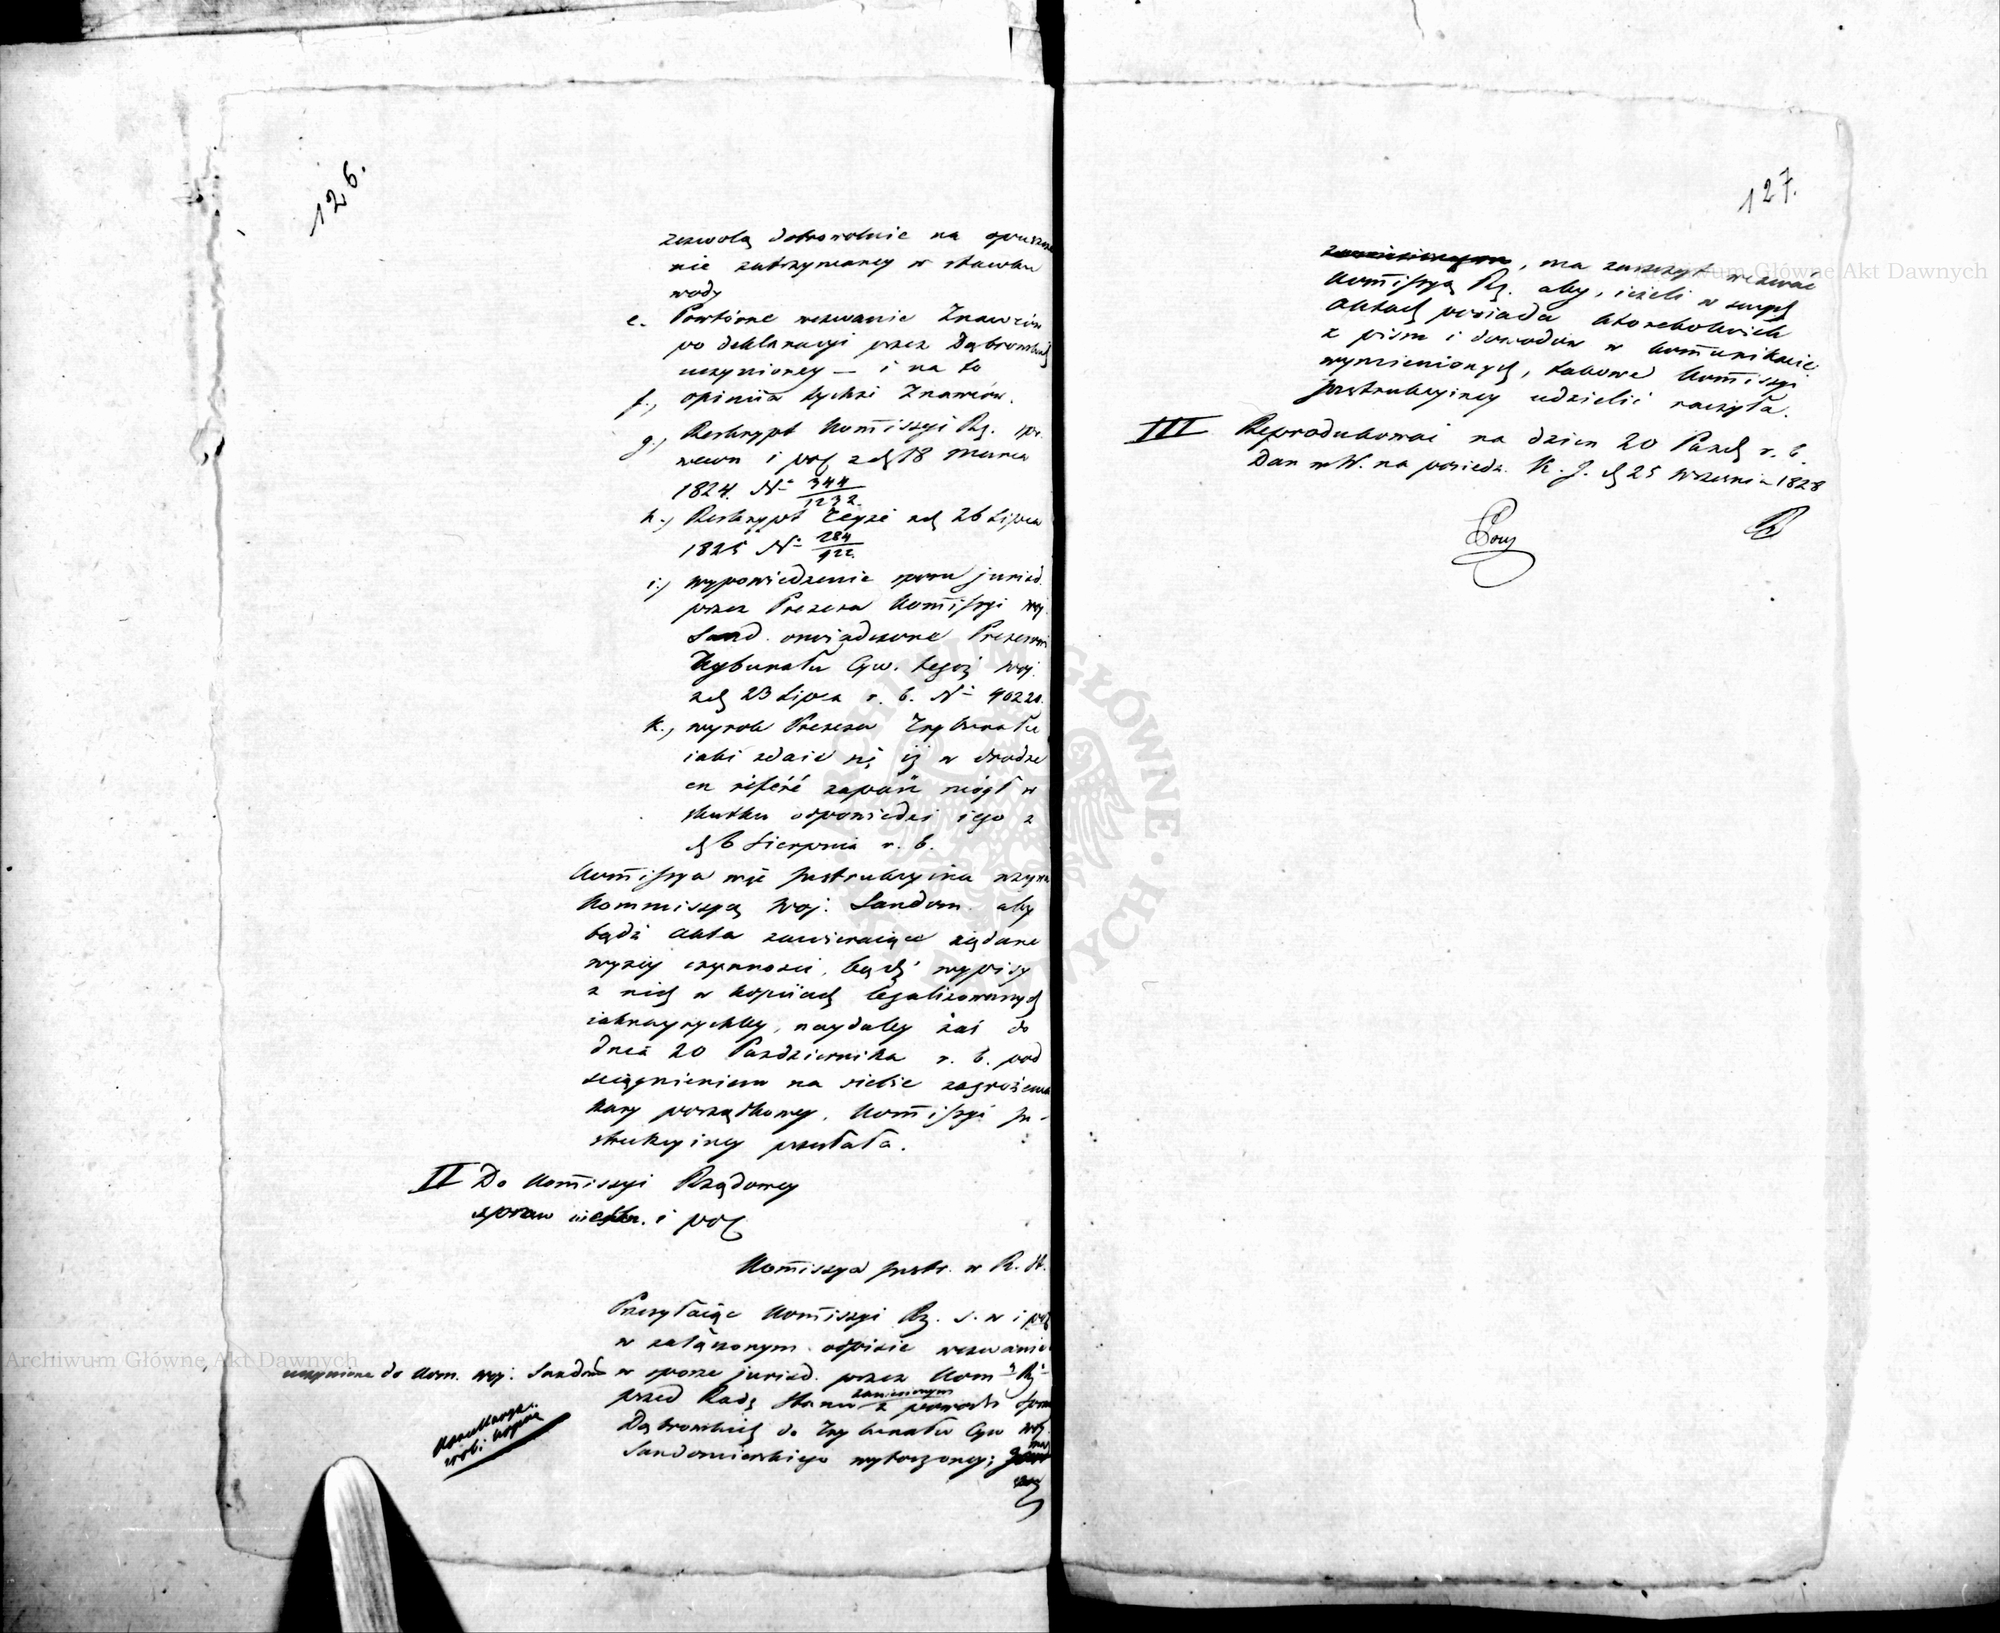 126.
zezwolą dobrowolnie na opuszcze
nie zatrzymaney w stawku
wody
e. Powtórne wezwanie Znawców
po deklaracyi przez Dąbrowskich
uczynioney — i na to
f., opiniia tychże Znawców.
g., Reskrypt Kom̄issyi Rz. spr.
wewn i pol z d. 18 Marca
1824. N° 344/1232.
h., Reskrypt teyże z d. 26 Lipca
1825 N° 284/922.
i., wypowiedzenie sporu jurizd.
przez Prezesa Kom̄issyi woj.
Sand. oświadczone Prezesowi
Trybunału Cyw. tegoż woj.
z d. 23 Lipca r. b. N° 40220.
k., wyrok Prezesa Trybunału
iaki zdaie się iż w drodze
en référé zapaść mógł w
skutku odpowiedzi iego z
d. 6 Sierpnia r. b.
Kom̄issya więc Instrukcyina wzywa
Kommissyą Woj. Sandom. aby
bądź akta zawieraiące żądane
wyżey czynności, bądź wypisy
z nich w kopiiach legalizowanych
iaknayrychley, naydaley zaś do
dnia 20 Października r. b. pod
ściągnieniem na siebie zagrożenia
kary porządkowey, Kom̄issyi In-
strukcyiney przesłała.
II Do Kom̄issyi Rządowey
spraw wewn. i pol.
Kom̄issya Instr. w R. St.
Przesyłaiąc Kom̄issyi Rz. s. w i pol
w załączonym odpisie wezwanie
uczynione do Kom. Woj. Sandom w sporze jurizd. przez Kom Rz
zaniesionym
przed Radę Stanu z powodu spra
Dąbrowskich do Trybunału Cyw Woj.
Sandomierskiego wytoczoney; ma
127.
, ma zaszczyt wezwać
Kom̄issyą Rz. aby, ieżeli w swych
aktach posiada którekolwiek
z pism i dowodów w kom̄unikacie
wymienionych, takowe Kom̄issyi
Instrukcyiney udzielić raczyła.
III Reprodukować na dzień 20 Paźd. r. b.
Dan w W. na posiedz. K. J. d. 25 Września 1828
Archiwum Główne Akt Dawnych
Archiwum Główne Akt Dawnych
ARCHIWUM GŁÓWNE AKT DAWNYCH